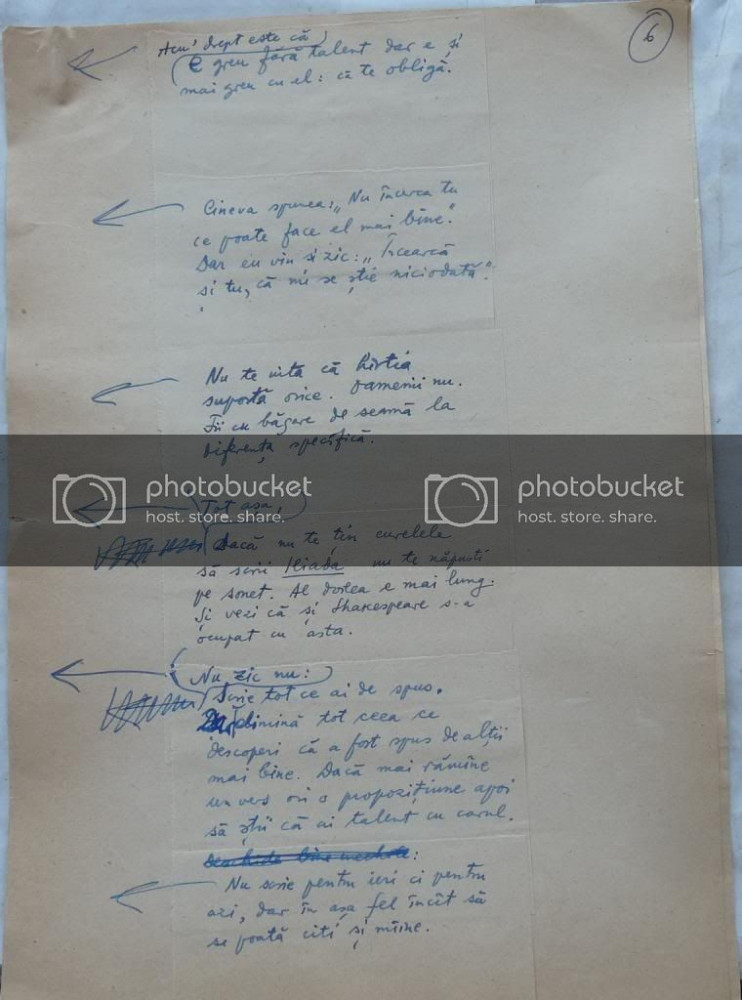 6
Acu' drept este că
E greu fără talent dar e și
mai greu cu el: că te obligă.
Cineva spunea: „Nu încerca tu
ce poate face el mai bine."
Dar eu vin si zic: „Încearcă
si tu, că nu se știe niciodată".
Nu te uita că hîrtia
suportă orice. Oamenii nu.
Fii cu băgare de seamă la
diferența specifică.
photobucket
host. store. share.
photobucket
host. store. share.
Tot așa,
Dacă nu te țin curelele
să scrii Iliada nu te năpusti
pe sonet. Al doilea e mai lung.
Și vezi că și Shakespeare s-a
ocupat cu asta.
Nu zic nu:
Scrie tot ce ai de spus.
Dar elimină tot ceea ce
descoperi că a fost spus de alții
mai bine. Dacă mai rămîne
un vers ori o propozițiune apoi
să știi că ai talent cu carul.
Deschide bine urechile:
Nu scrie pentru ieri ci pentru
azi, dar în așa fel încît să
se poată citi și mîine.